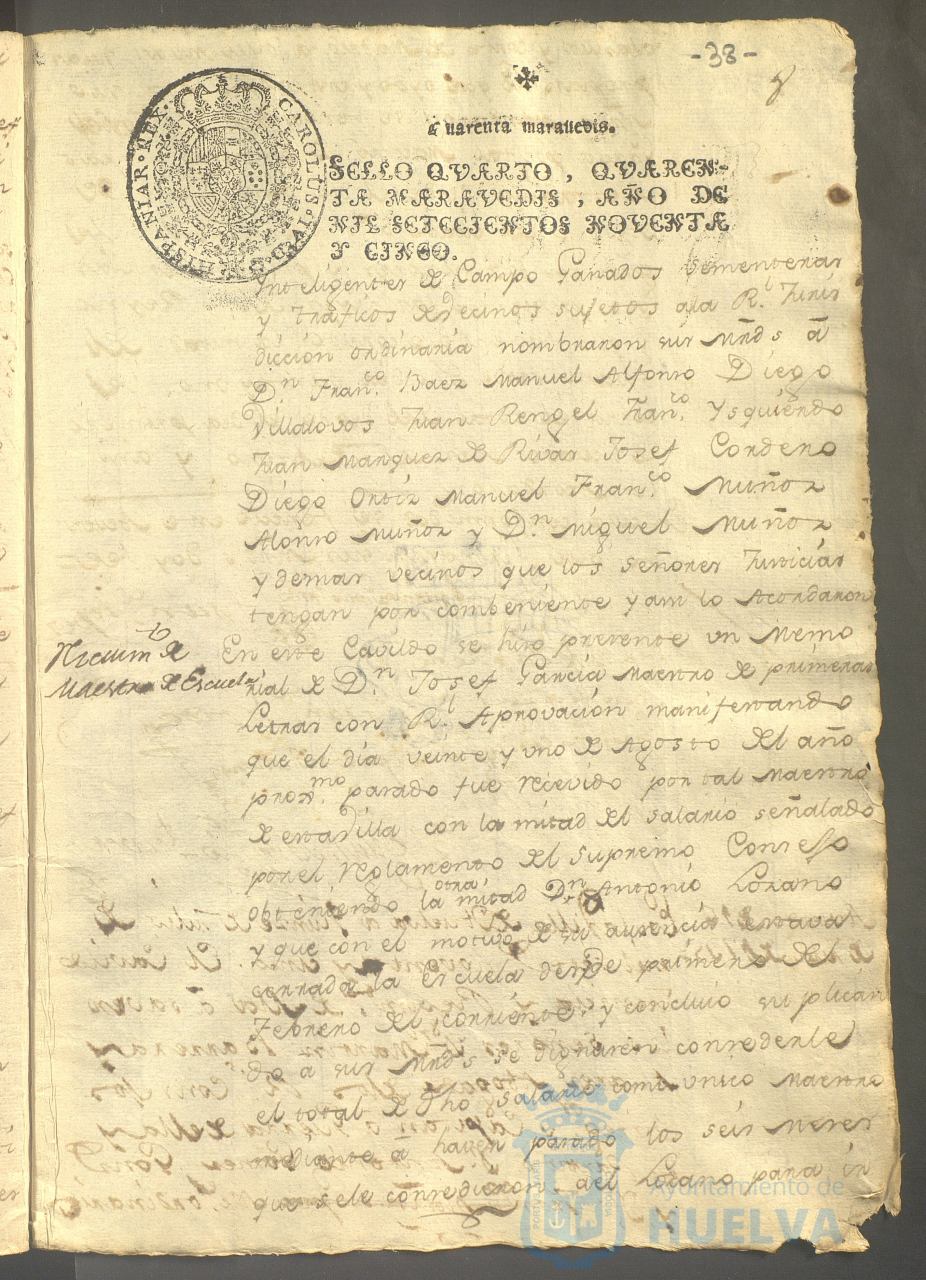 -38-
8
CAROLUS · IV · D · G · HISPANIAR · REX ·
Quarenta marauedis.
SELLO QVARTO, QVAREN-
TA MARAVEDIS, AÑO DE
MIL SETECIENTOS NOVENTA
Y CINCO.
Inteligentes de Campo Ganados sementeras
y traficos de vecinos sujetos a la Rl. Juris
diccion ordinaria nombraron sus Mrds a
Dn. Franco. Baez Manuel Alfonso Diego
Villalovos Juan Rengel Franco. Ysquierdo
Juan Marquez de Rivas Josef Cordero
Diego Ortiz Manuel Franco. Muñoz
Alonso Muñoz y Dn. Miguel Muñoz
y demas vecinos que los señores Justicias
tengan por combeniente y asi lo Acordaron
Nrecivimto de
Maestro de Escuela
En este Cavildo se hizo presente un Memo
rial de Dn. Josef Garcia Maestro de primeras
Letras con Rl. Aprovacion manifestando
que el dia veinte y uno de Agosto del año
proxmo. pasado fue recevido por tal Maestro
de esta Villa con la mitad del salario señalado
por el reglamento del Supremo Consejo
obteniendo la otra mitad Dn. Antonio Lozano
y que con el motivo de su ausencia estava
cerrada la Escuela desde primero del
Febrero del corriente, y concluio suplican
do a sus Mrds se dignasen concederle
el total de dho salario como unico Maestro
mediante a haver pasado los seis meses
que se le concedieron al Lozano para in
Ayuntamiento de
HUELVA